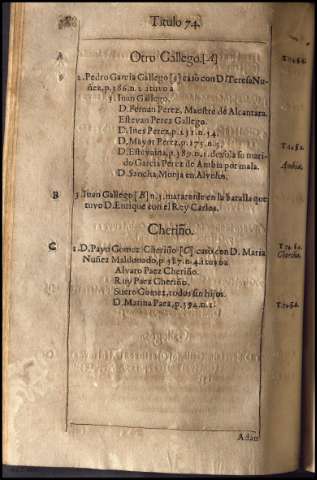 Titulo 74.
Otro Gallego. [A]
2. Pedro Garcia Gallego [2] casò con D. Teresa Nu-
ñez, p. 386. n. 2. i tuvo a
3. Iuan Gallego.
D. Fernan Perez, Maestre de Alcantara.
Estevan Perez Gallego.
D. Ines Perez, p. 132. n. 34.
D. Mayor Perez, p. 275. n. 5.
D. Estevaina, p. 389. n. 1. dexòla su mari-
do Garcia Perez de Ambia por mala.
D. Sancha, Monja en Alveos.
3. Iuan Gallego [B] n. 3. mataronlo en la batalla que
tuvo D. Enrique con el Rey Carlos.
Cheriño.
1. D. Payo Gomez Cheriño [C] casò con D. Maria
Nuñez Maldonado, p. 387. n. 4. i tuvo a
Alvaro Paez Cheriño.
Ruy Paez Cheriño.
Suero Gomez, todos sin hijos.
D. Marina Paez, p. 392. n. 1.
A
B
C
Ambia
Cheriño.